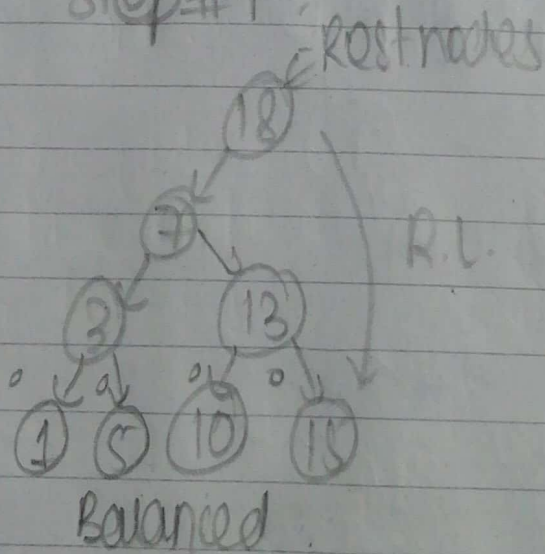 Step#1
Rootnodes
18
7
R.L.
3 13
0 0 0 0
1 5 10 15
Balanced